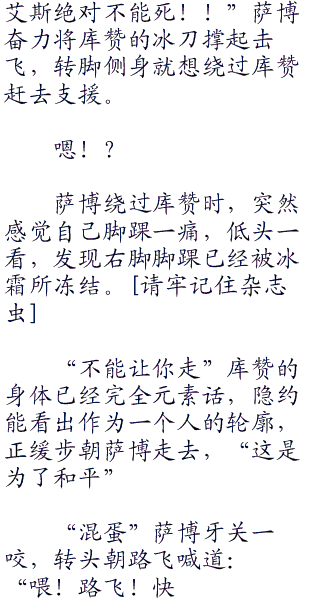 艾斯绝对不能死！！”萨博
奋力将库赞的冰刀撑起击
飞，转脚侧身就想绕过库赞
赶去支援。
嗯！？
萨博绕过库赞时，突然
感觉自己脚踝一痛，低头一
看，发现右脚脚踝已经被冰
霜所冻结。[请牢记住杂志
虫]
“不能让你走”库赞的
身体已经完全元素话，隐约
能看出作为一个人的轮廓，
正缓步朝萨博走去，“这是
为了和平”
“混蛋”萨博牙关一
咬，转头朝路飞喊道：
“喂！路飞！快